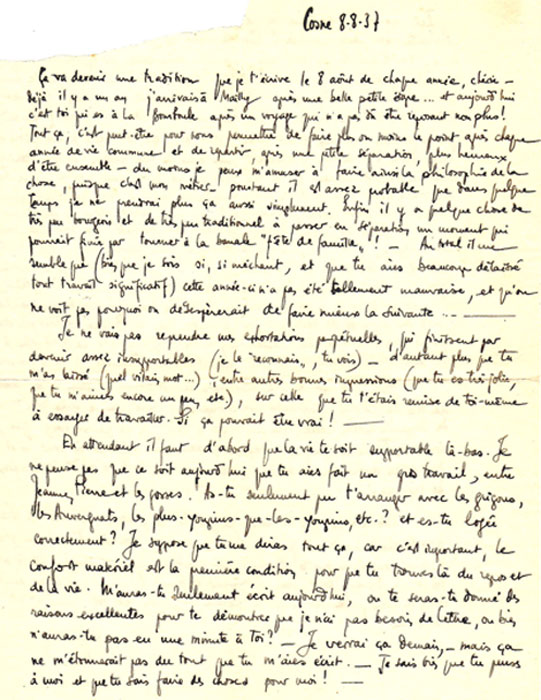 Cosne 8-8-37
Ça va devenir une tradition que je t'écrive le 8 août de chaque année, chérie –
déjà il y a un an j'arrivais à Mailly après une belle petite étape ... et aujourd'hui
c'est toi qui es à la Bourboule après un voyage qui n'a pas dû être reposant non plus!
Tout ça, c'est peut-être pour nous permettre de faire plus ou moins le point après chaque
année de vie commune et de repartir, après une petite séparation, plus heureux
d'être ensemble – du moins je peux m'amuser à faire ainsi la philosophie de la
chose, puisque c'est mon métier – pourtant il est assez probable que dans quelque
temps je ne prendrai plus ça aussi simplement. Enfin il y a quelque chose de
très peu bourgeois et de très peu traditionnel à passer en séparation un moment qui
pourrait finir par tourner à la banale "fête de famille"! – Au total il me
semble que (bien que je sois si, si méchant, et que tu aies beaucoup délaissé
tout travail significatif) cette année-ci n'a pas été tellement mauvaise, et qu'on
ne voit pas pourquoi on désespérerait de faire mieux la suivante ... –
Je ne vais pas reprendre mes exhortations perpétuelles, qui finissent par
devenir assez insupportables (je le "reconnais", tu vois) – d'autant plus que tu
m'as laissé (quel vilain mot...), entre autres bonnes impressions (que tu es très jolie,
que tu m'aimes encore un peu, etc), sur celle que tu t'étais remise de toi-même
à essayer de travailler. Si ça pouvait être vrai! –
En attendant il faut d'abord que la vie te soit supportable là-bas. Je
ne pense pas que ce soit aujourd'hui que tu aies fait un gros travail, entre
Jeanne, Pierre et les gosses. As-tu seulement pu t'arranger avec les
les Auvergnats, les plus- -que-les- , etc.? et es-tu logée
correctement? Je suppose que tu me diras tout ça, car c'est important, le
confort matériel est la première condition pour que tu trouves là du repos et
de la vie. M'auras-tu seulement écrit aujourd'hui, ou te seras-tu donné des
raisons excellentes pour te démontrer que je n'ai pas besoin de lettre, ou bien
n'auras-tu pas eu une minute à toi? – Je verrai ça demain, – mais ça
ne m'étonnerait pas du tout que tu m'aies écrit. – Je sais bien que tu penses
à moi et que tu sais faire des choses pour moi! –